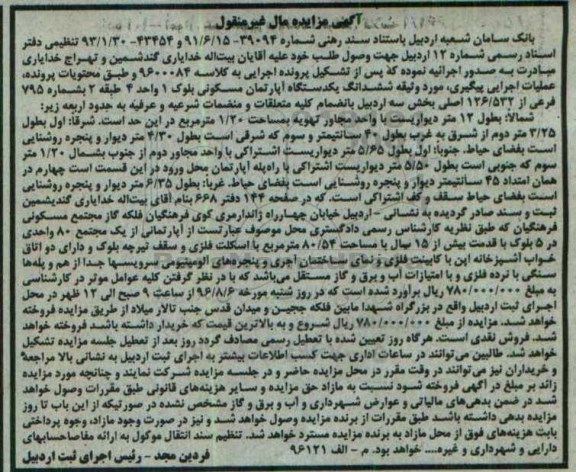 آگهی مزایده مال غیرمنقول
بانک سامان شعبه اردبیل باستناد سند رهنی شماره ۳۹۰۹۴-۹۱/۶/۱۵ و ۴۳۴۵۴-۹۳/۱/۳۰ تنظیمی دفتر
اسناد رسمی شماره ۱۲ اردبیل جهت وصول طلب خود علیه آقایان بیت‌اله خدایاری گندشمین و تهراج خدایاری
مبادرت به صدور اجرائیه نموده که پس از تشکیل پرونده اجرایی به کلاسه ۹۶۰۰۰۸۴ و طبق محتویات پرونده،
عملیات اجرایی پیگیری، مورد وثیقه ششدانگ یکدستگاه آپارتمان مسکونی بلوک ۱ واحد ۴ طبقه ۲ بشماره ۷۹۵
فرعی از ۱۲۶/۵۳۲ اصلی بخش سه اردبیل بانضمام کلیه متعلقات و منضمات شرعیه و عرفیه به حدود اربعه زیر:
شمالا: بطول ۱۲ متر دیواریست با واحد مجاور تهویه بمساحت ۱/۲۰ مترمربع در این حد است. شرقا: اول بطول
۳/۲۵ متر دوم از شرق به غرب بطول ۴۰ سانتیمتر و سوم که شرقی است بطول ۴/۳۰ متر دیوار و پنجره روشنایی
است بفضای حیاط. جنوبا: اول بطول ۵/۶۵ متر دیواریست اشتراکی با واحد مجاور دوم از جنوب بشمال ۱/۲۰ متر
سوم که جنوبی است بطول ۵/۵۰ متر دیواریست اشتراکی با راه‌پله آپارتمان محل ورود در این قسمت است چهارم در
همان امتداد ۴۵ سانتیمتر دیوار و پنجره روشنایی است بفضای حیاط. غربا: بطول ۶/۳۵ متر دیوار و پنجره روشنایی
است بفضای حیاط سقف و کف اشتراکی است. که در صفحه ۱۴۴ دفتر ۶۶۸ بنام آقای بیت‌اله خدایاری گندیشمین
ثبت و سند صادر گردیده به نشانی - اردبیل خیابان چهارراه ژاندارمری کوی فرهنگیان فلکه گاز مجتمع مسکونی
فرهنگیان که طبق نظریه کارشناس رسمی دادگستری محل موصوف عبارتست از آپارتمانی از یک مجتمع ۸۰ واحدی
در ۵ بلوک با قدمت بیش از ۱۵ سال با مساحت ۸۰/۵۴ مترمربع با اسکلت فلزی و سقف تیرچه بلوک و دارای دو اتاق
خواب آشپزخانه اپن با کابینت فلزی و نمای ساختمان آجری و پنجره‌های آلومینیومی سرویسها جدا از هم و پله‌ها
سنگی با نرده فلزی و با امتیازات آب و برق و گاز مستقل می‌باشد که با در نظر گرفتن کلیه عوامل موثر در کارشناسی
به مبلغ ۷۸۰/۰۰۰/۰۰۰ ریال برآورد شده است که در روز شنبه مورخه ۹۶/۸/۶ از ساعت ۹ صبح الی ۱۲ ظهر در محل
اجرای ثبت اردبیل واقع در بزرگراه شهدا مابین فلکه ججین و میدان قدس جنب تالار میلاد از طریق مزایده فروخته
خواهد شد. مزایده از مبلغ ۷۸۰/۰۰۰/۰۰۰ ریال شروع و به بالاترین قیمت که خریدار داشته باشد فروخته خواهد
شد. فروش نقدی است. هرگاه روز تعیین شده با تعطیل رسمی مصادف گردد روز بعد از تعطیل جلسه مزایده تشکیل
خواهد شد. طالبین می‌توانند در ساعات اداری جهت کسب اطلاعات بیشتر به اجرای ثبت اردبیل به نشانی بالا مراجعه
و خریداران نیز می‌توانند در وقت مقرر در محل مزایده حاضر و در جلسه مزایده شرکت نمایند و چنانچه مورد مزایده
زائد بر مبلغ در آگهی فروخته شود نسبت به مازاد حق مزایده و سایر هزینه‌های قانونی طبق مقررات وصول خواهد
شد در ضمن بدهی‌های مالیاتی و عوارض شهرداری و آب و برق و گاز مشخص نشده در صورتیکه از این باب تا روز
مزایده بدهی داشته باشد طبق مقررات از برنده مزایده وصول خواهد شد و نیز در صورت وجود مازاد، وجوه پرداختی
بابت هزینه‌های فوق از محل مازاد به برنده مزایده مسترد خواهد شد. تنظیم سند انتقال موکول به ارائه مفاصاحسابهای
دارایی و شهرداری و غیره.... خواهد بود. م - الف ۹۶۱۲۱
فردین مجد - رئیس اجرای ثبت اردبیل